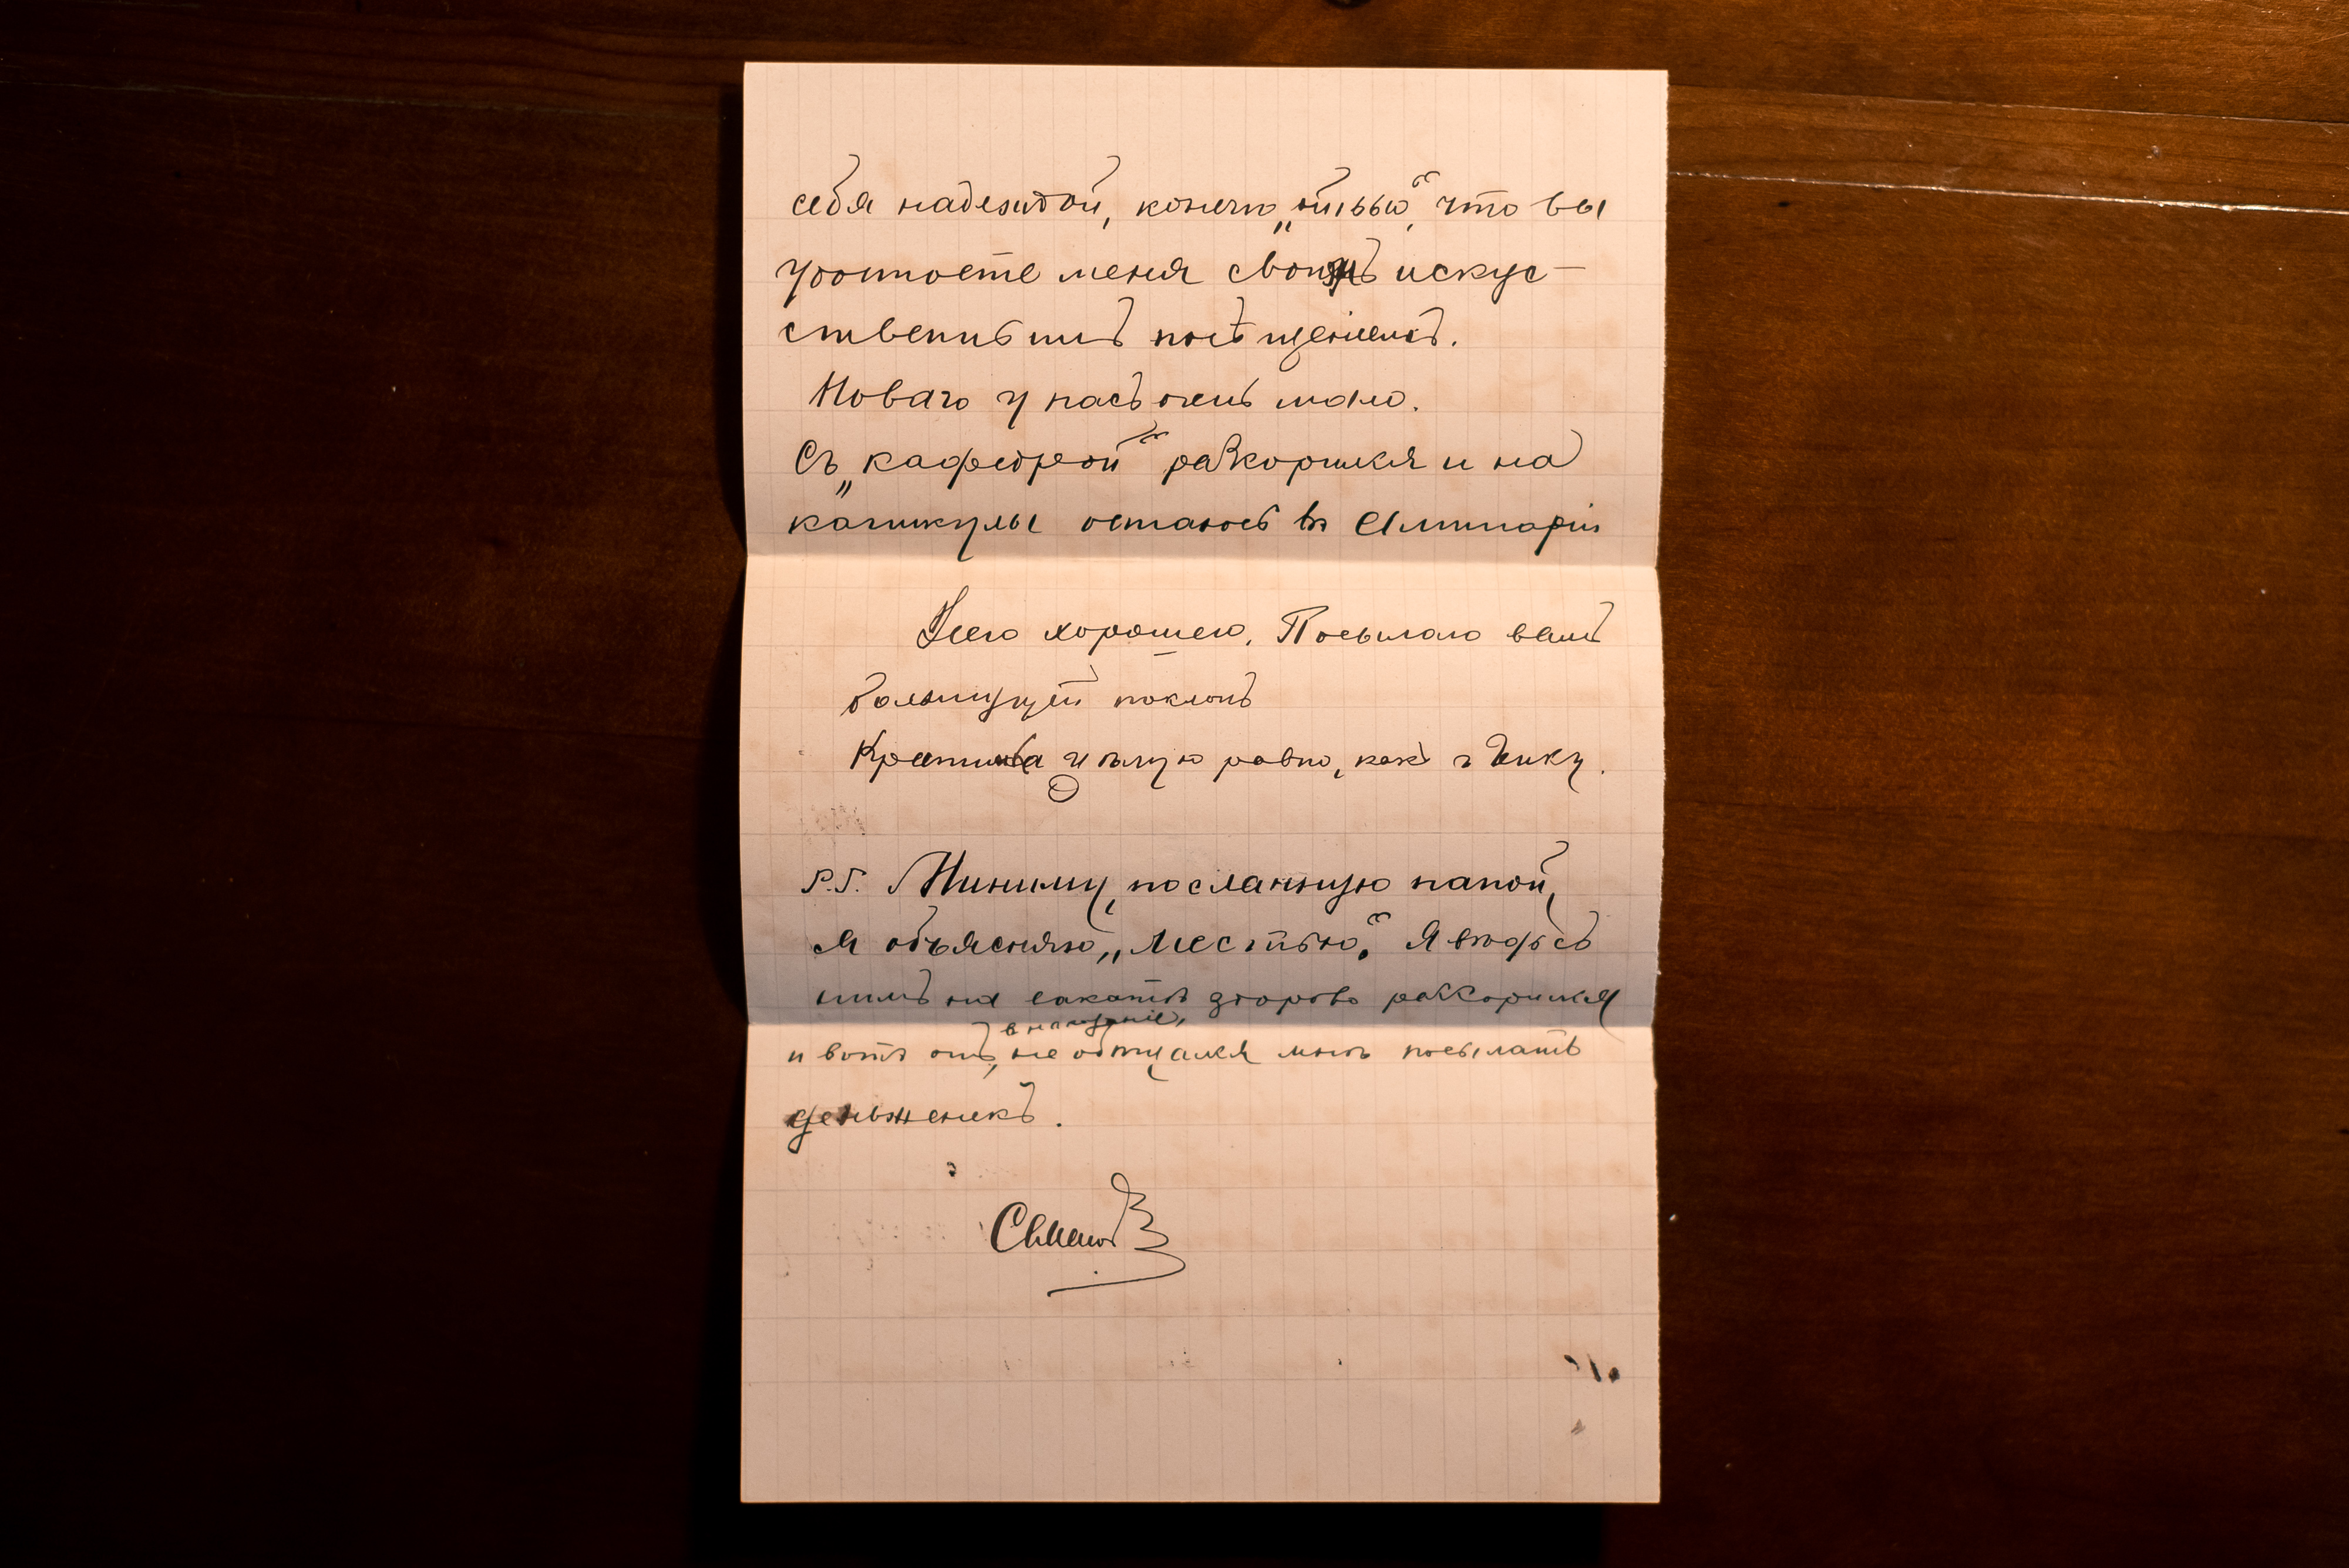 себя надеждой, конечно, что вы
удостоете меня своимъ искус-
ственнымъ посѣщеніемъ.
Новаго у насъ очень мало.
Съ „кафедрой“ разкорился и на
каникулы остаюсь въ
Всего хорошего. Посылаю вамъ
большущій поклонъ
цѣлую равно, какъ и
P.S. посланную папой,
я объясняю, „местью“. Я
нимъ на здорово разкорился
и вотъ онъ, в наказаніе, не мнѣ посылать
деньженекъ.